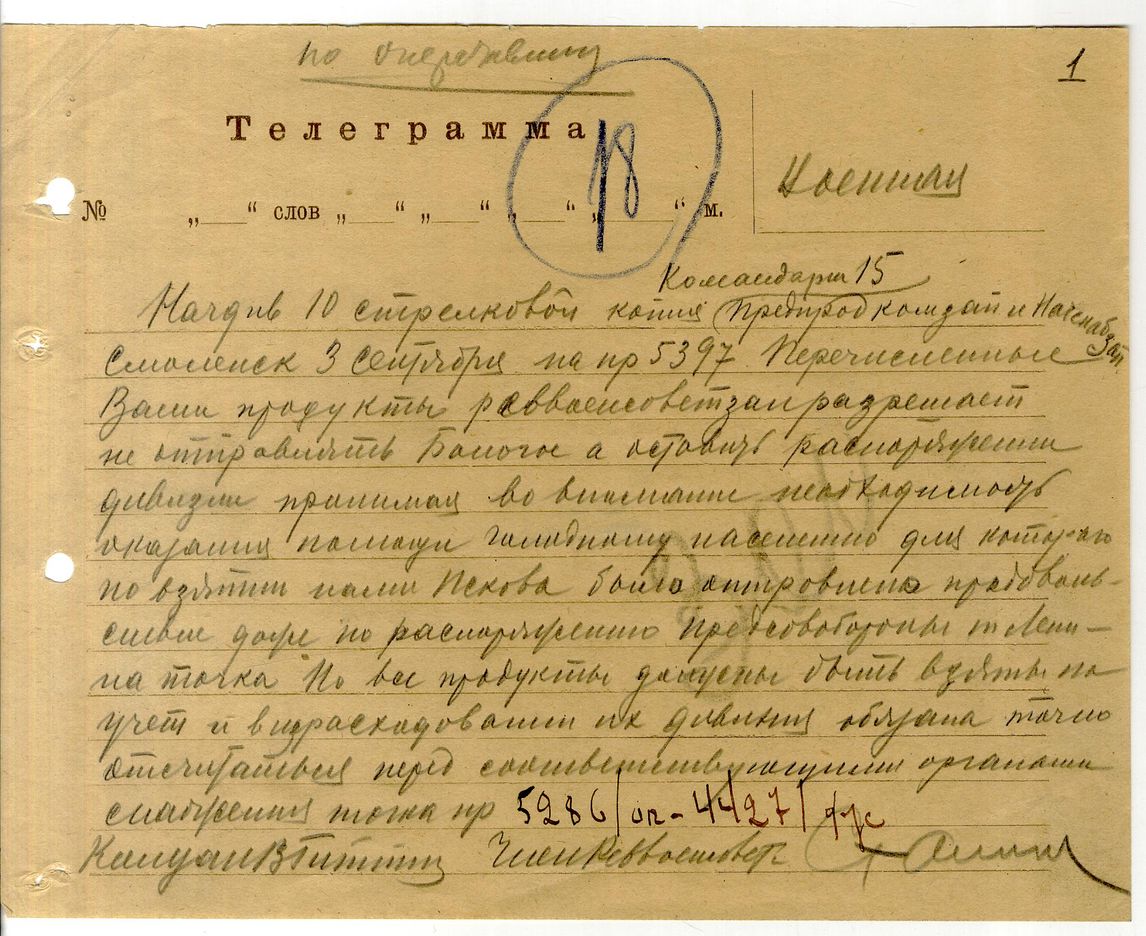 по
1
Телеграмма
18
Военная
№ „ “ слов „ “ „ “ „ “ „ “ м.
Командарм 15
Начдив 10 стрелковой копия Предпродкомзап и Начснабзап
Смоленск 3 сентября на нр 5397 Перечисленные
Вами продукты реввоенсоветзап разрешает
не отправлять Бологое а оставить распоряжении
дивизии принимая во внимание необходимость
оказания помощи голодному населению для которого
по взятии нами Пскова было отправлено продоволь-
ствие даже по распоряжению Предсовобороны т Лени-
на точка Но все продукты должны быть взяты на
учет и в израсходовании их дивизия обязана точно
отсчитаться перед соответствующими органами
снабжения точка нр 5286/оп-4427/
Командзап Гиттис Член Реввоенсовета